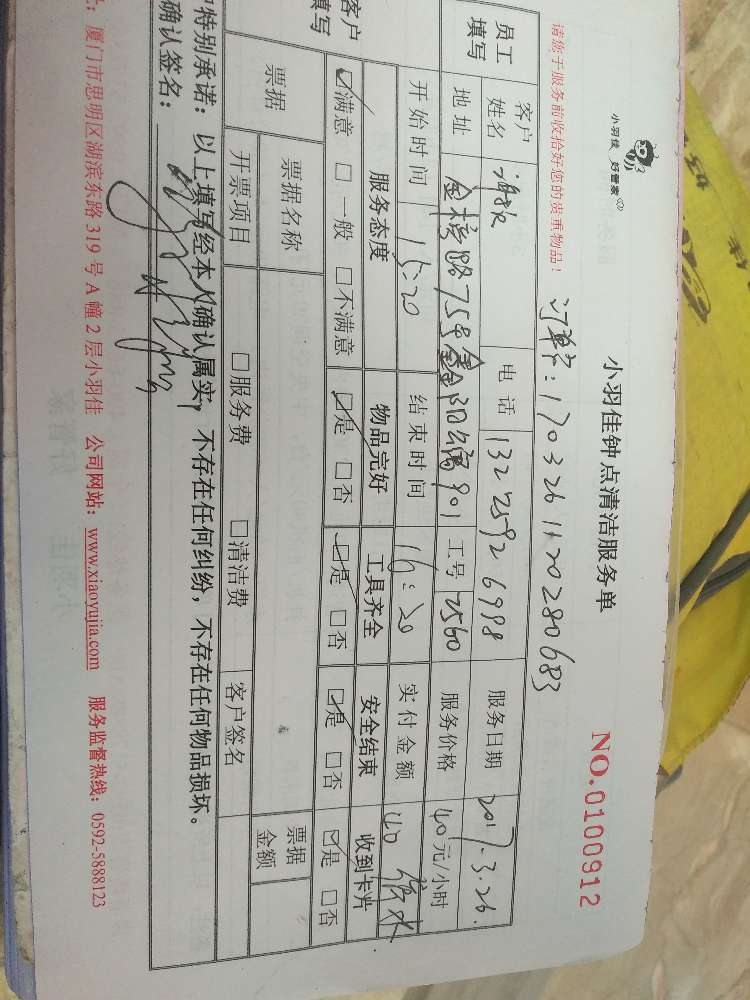 小羽佳 好管家
小羽佳钟点清洁服务单
NO.0100912
请您于服务前收拾好您的贵重物品！
订单号：1703261120280683
员工填写
客户姓名 电话 13225926998 服务日期 2017.3.26.
地址 金榜路75号鑫阳阁901 工号 2560 服务价格 40元/小时
开始时间 15:20 结束时间 16:20 实付金额 40 薪水
客户填写
服务态度 物品完好 工具齐全 安全结束 收到卡片
☑满意 □一般 □不满意 ☑是 □否 ☑是 □否 ☑是 □否 ☑是 □否
票据 票据名称 票据金额
开票项目 □服务费 □清洁费 客户签名
户特别承诺：以上填写经本人确认属实，不存在任何纠纷，不存在任何物品损坏。
确认签名：
厦门市思明区湖滨东路319号A幢2层小羽佳 公司网站：www.xiaoyujia.com 服务监督热线：0592-5888123